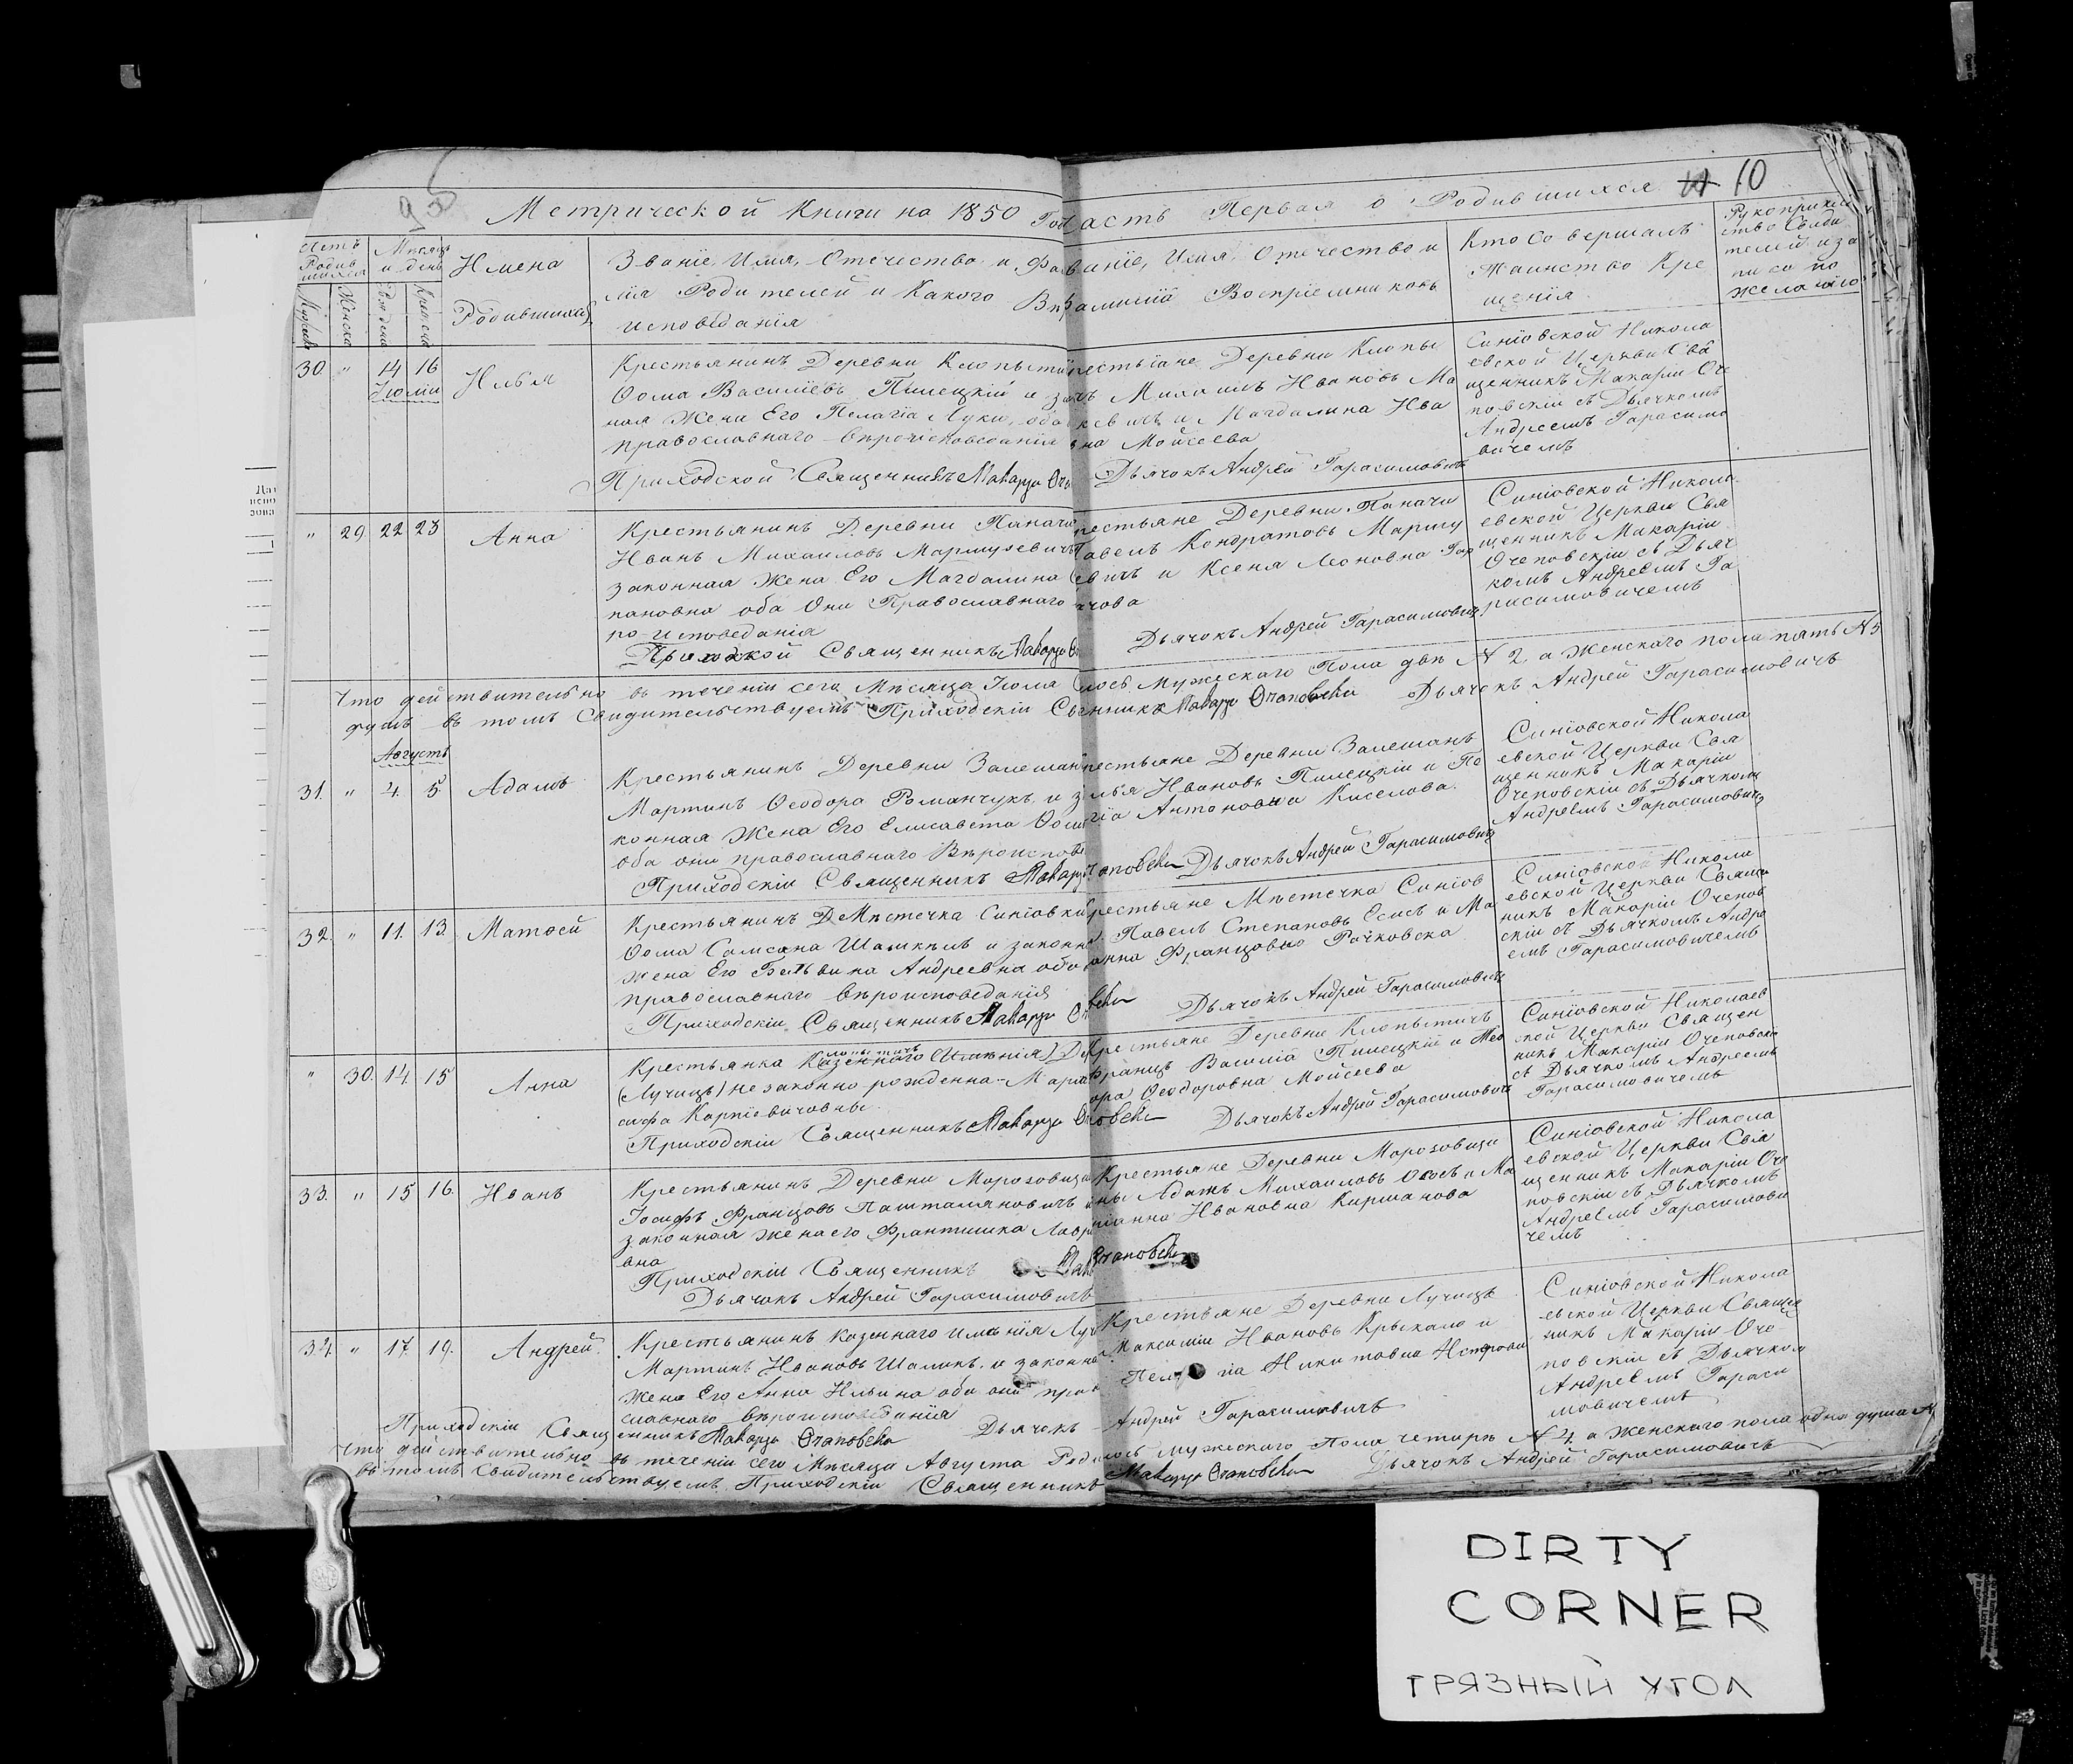 Метрической Книги на 1850 Год
Часть Первая о Родившихся 10
Мѣсяцъ и день
Имена
Родившихся
Званіе, Имя, Отечество и Фа
лія Родителей и Какого Вѣ
исповѣданія
Званіе, Имя, Отечество и
Фамилія Воспріемниковъ
Кто Совершалъ
Таинство Кре
щенія
Рукоприклад
ство Свидѣ
телей
по
желанію
30 " 14 16
Іюлій
Илья
Крестьянинъ Деревни Клопыти
Ѳома Василіевъ Пилецкій и за
ная Жена Его Пелагія Луки, оба
православнаго вѣроисповеданія
Приходской Священникъ Макарій
рестьяне Деревни Клопы
Михаилъ Ивановъ Ма
и Магдалина Ива
на Мойсеева
Дьячокъ Андрей Гарасимовичъ
Синіовской Никола
евской Церкви Свя
щенникъ Макарій Оче
повскій съ Дьячкомъ
Андреемъ Гарасимо
вичемъ
" 29. 22 23
Анна
Крестьянинъ Деревни Паначи
Иванъ Михаиловъ Маршузевичъ
законная Жена Его Магдалина
пановна оба Они Православнаго
ро-исповеданія
Приходской Священникъ Макарій
рестьяне Деревни Паначи
Павелъ Кондратовъ Маршу
евичъ и Ксеня Леоновна Гар
чова
Дьячокъ Андрей Гарасимовичъ
Синіовской Никола
евской Церкви Свя
щенникъ Макарій
Очеповскій съ Дьяч
комъ Андреемъ Га
расимовичемъ
Что действительно въ теченіи сего Мѣсяца Іюля
лось Мужескаго Пола двѣ N 2 а Женскаго пола пять N 5
душъ въ томъ Свидительствуемъ Приходскій Свенникъ Макарій Очаповски Дьячокъ Андрей Гарасимовичъ
Августъ
31. " 4. 5.
Адамъ
Крестьянинъ Деревни Залешан
Мартинъ Ѳеодора Романчукъ и за
конная Жена Его Елисавета Ѳом
оба они православнаго Вѣроиспове
Приходскіи Священникъ Макарій Очаповски
рестьяне Деревни Залешанъ
Илья Ивановъ Пилецкіи и По
гія Антоновна Киселова.
Дьячокъ Андрей Гарасимовичъ
Синіовской Никола
евской Церкви Свя
щенникъ Макарій
Очеповскіи съ Дьячкомъ
Андреемъ Гарасимовичемъ
32. " 11. 13.
Матѳей
Крестьянинъ Д Мѣстечка Синіовки
Ѳома Самсона Шашкель и законн
жена Его Бальвина Андреевна оба
православнаго вѣроисповеданія
Приходскіи Священникъ Макарій
рестьяне Мѣстечка Синіов
Павелъ Степановъ Есисъ и Ма
анна Францовно Рочковска
Дьячокъ Андрей Гарасимовичъ
Синіовской Никола
евской Церкви Священ
никъ Макарій Очепов
скіи съ Дьячкомъ Андре
емъ Гарасимовичемъ
" 30. 14. 15
Анна
Крестьянка Казеннаго (Имѣнія) Де
(Лучицъ) незаконно рожденна - Мара
сифа Карпіевичовны.
Приходскіи Священникъ Макарій
Крестьяне Деревни Клопытичъ
Францъ Василіа Пилецкіи и Тео
ора Ѳеодоровна Мойсеева
Дьячокъ Андрей Гарасимовичъ
Синіовской Николаев
ской Церкви Священ
никъ Макарій Очеповскіи
съ Дьячкомъ Андреемъ
Гарасимовичемъ
33. " 15 16.
Иванъ
Крестьянинъ Деревни Морозовици
Іосифъ Францовъ Пашталяновичъ
законная жена его Франтишка Лавр
вна
Приходскіи Священникъ Макарій Очаповски
Дьячокъ Андрей Гарасимовичъ
Крестьяне Деревни Морозовици
Адамъ Михаиловъ Ѳѳосъ и Ма
ріанна Ивановна Киршанова
Синіовской Никола
евской Церкви Свя
щенникъ Макарій Оче
повскіи съ Дьячкомъ
Андреемъ Гарасимови
чемъ
34. " 17. 19.
Андрей.
Крестьянинъ казеннаго имѣнія Луч
Мартинъ Ивановъ Шалинъ. и законна
жена Его Анна Ильина оба они право
славнаго вѣроисповеданія
Приходскіи Священникъ Макарій Очаповски Дьячокъ Андрей Гарасимовичъ
Крестьяне Деревни Лучицъ
Максимій Ивановъ Крыкало и
Пел гіа Никитовна Нетрови
Синіовской Никола
евской Церкви Священ
никъ Макарій Оче
повскіи съ Дьячком
Андреемъ Гараси
мовичемъ
Что действительно въ теченіи сего Мѣсяца Августа Родилось мужескаго Пола четири N 4 а Женскаго пола одна душа N
въ томъ Свидительствуемъ Приходскіи Священникъ Макарій Очаповски Дьячокъ Андрей Гарасимовичъ
DIRTY
CORNER
ГРЯЗНЫЙ УГОЛ